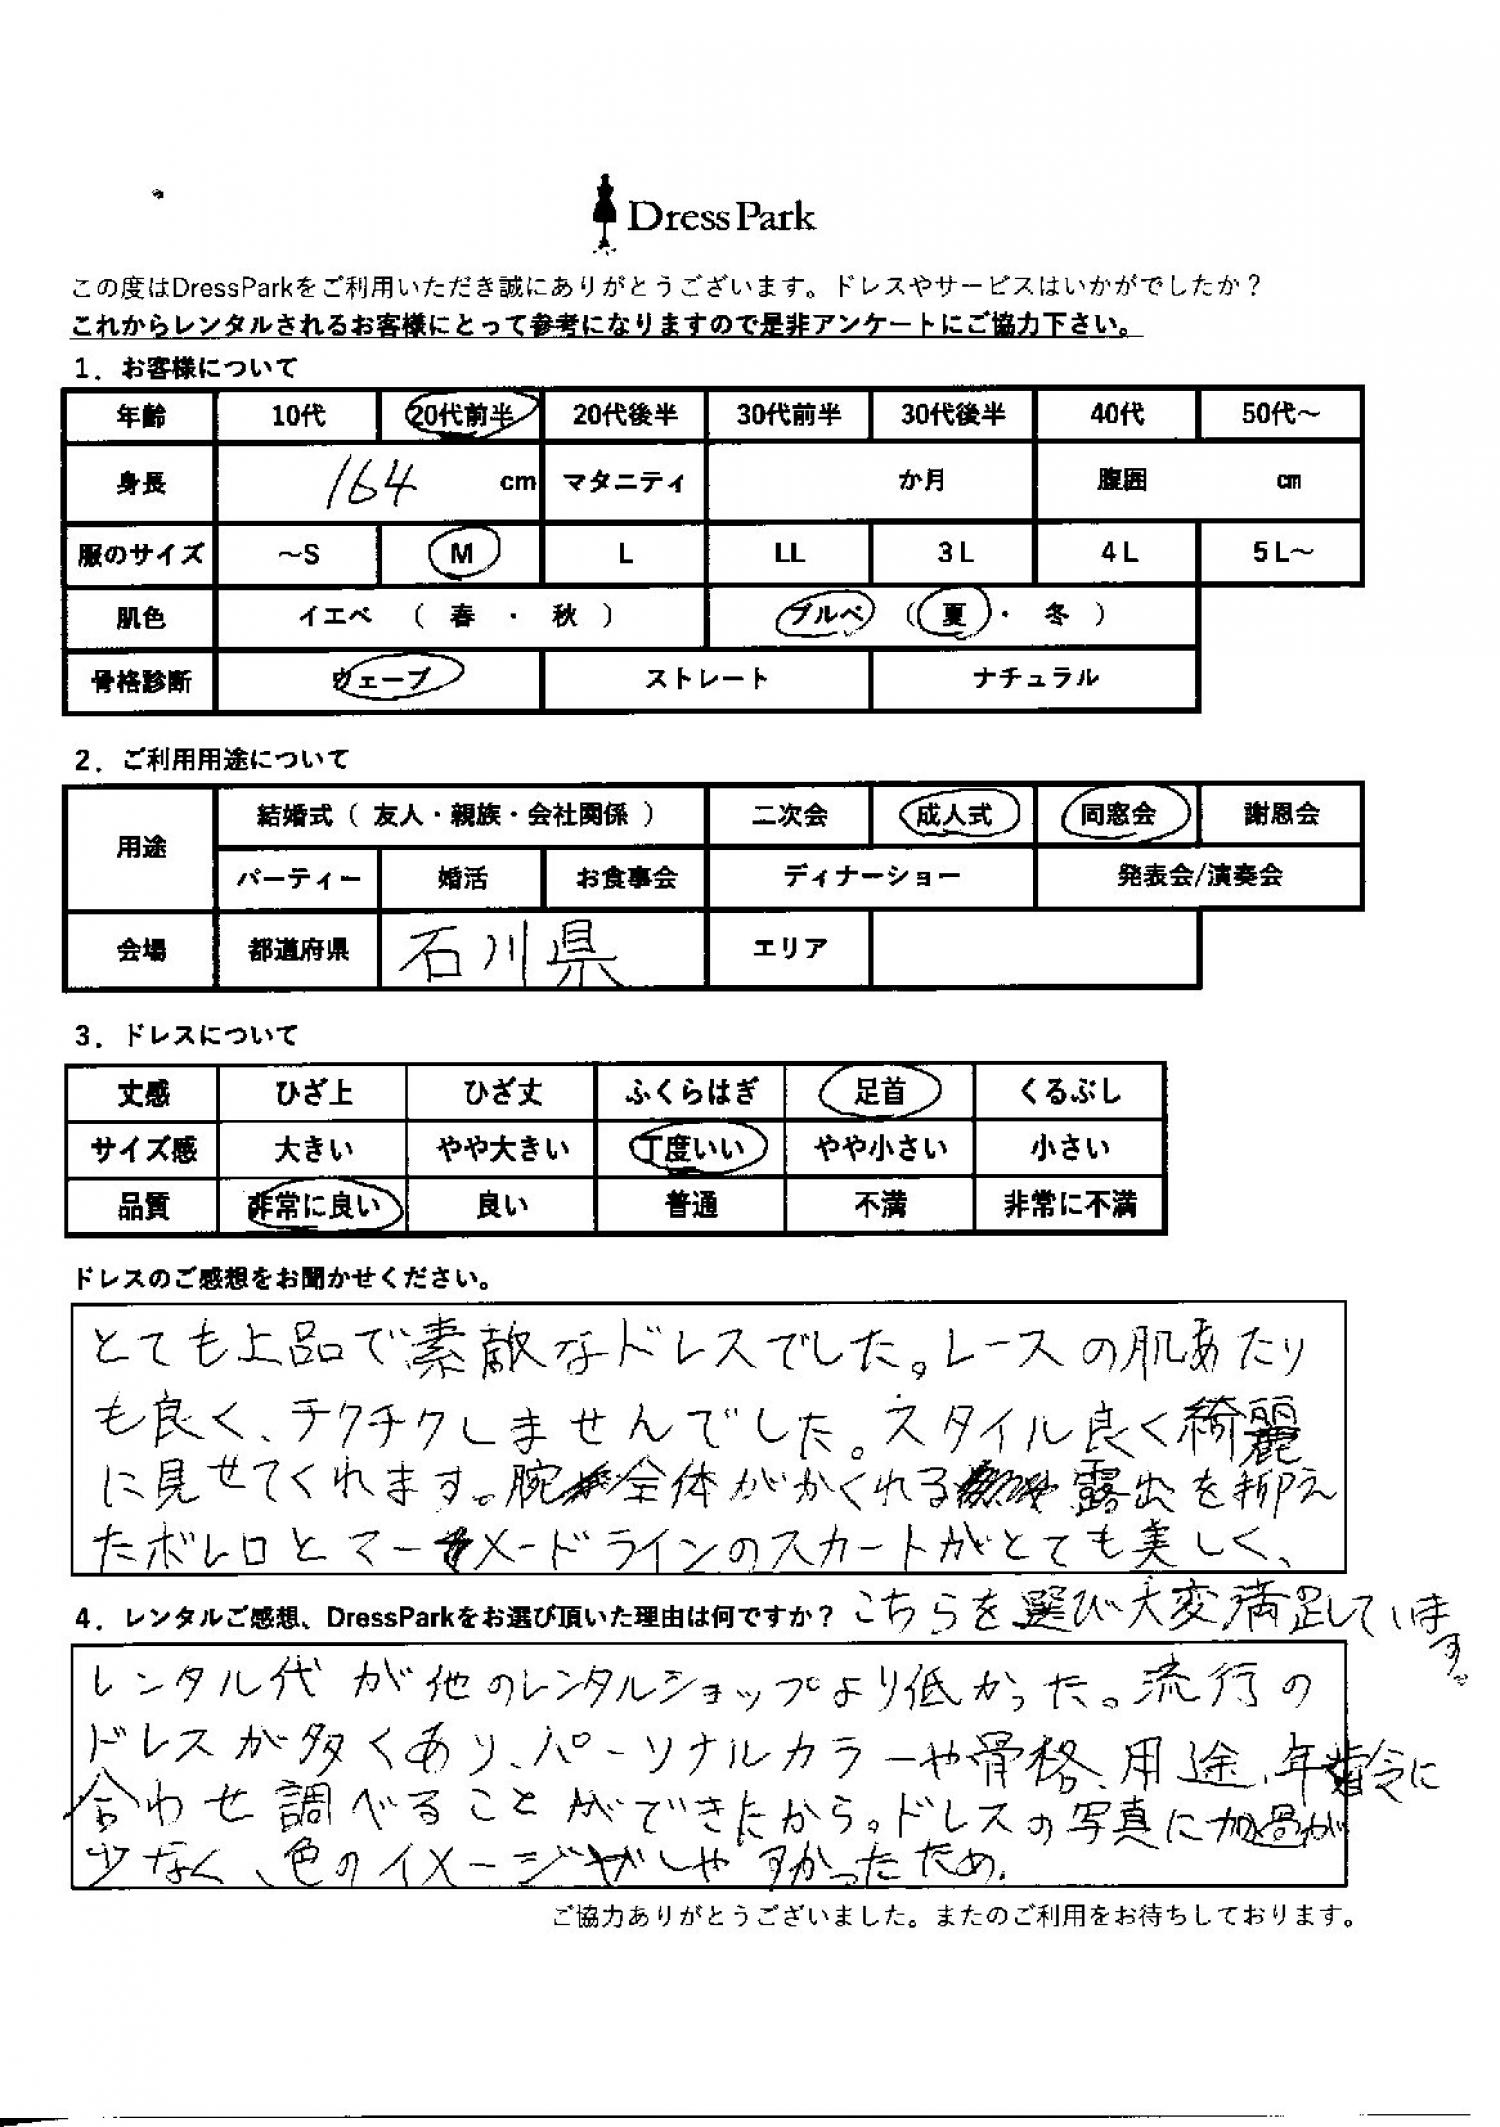 DressPark
この度はDressParkをご利用いただき誠にありがとうございます。ドレスやサービスはいかがでしたか？
これからレンタルされるお客様にとって参考になりますので是非アンケートにご協力下さい。
1．お客様について
年齢 10代 20代前半 20代後半 30代前半 30代後半 40代 50代～
身長 164 cm マタニティ か月 腹囲 cm
服のサイズ ～S M L LL 3L 4L 5L～
肌色 イエベ （ 春 ・ 秋 ） ブルベ （ 夏 ・ 冬 ）
骨格診断 ウェーブ ストレート ナチュラル
2．ご利用用途について
用途 結婚式（ 友人・親族・会社関係 ） 二次会 成人式 同窓会 謝恩会
パーティー 婚活 お食事会 ディナーショー 発表会/演奏会
会場 都道府県 石川県 エリア
3．ドレスについて
丈感 ひざ上 ひざ丈 ふくらはぎ 足首 くるぶし
サイズ感 大きい やや大きい 丁度いい やや小さい 小さい
品質 非常に良い 良い 普通 不満 非常に不満
ドレスのご感想をお聞かせください。
とても上品で素敵なドレスでした。レースの肌あたり
も良く、チクチクしませんでした。スタイル良く綺麗
に見せてくれます。腕全体がかくれる露出を抑え
たボレロとマーメードラインのスカートがとても美しく、
こちらを選び大変満足しています。
4．レンタルご感想、DressParkをお選び頂いた理由は何ですか？
レンタル代が他のレンタルショップより低かった。流行の
ドレスが多くあり、パーソナルカラーや骨格、用途、年齢に
合わせ調べることができたから。ドレスの写真に加過が
少なく、色のイメージがしやすかったため。
ご協力ありがとうございました。またのご利用をお待ちしております。